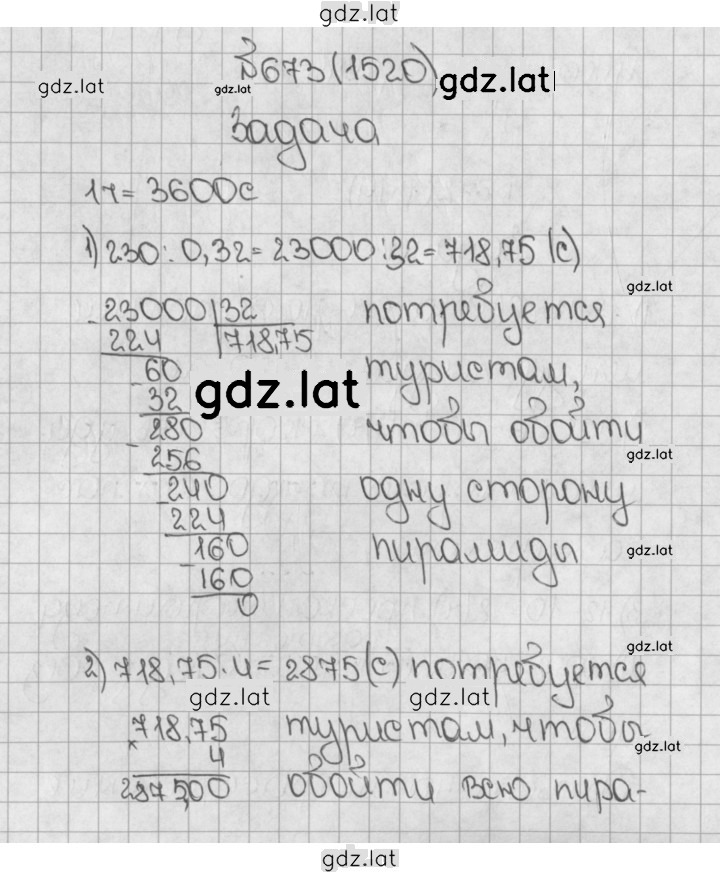 gdz.lat
№673 (1520) gdz.lat
gdz.lat gdz.lat
Задача
1ч = 3600с
1) 230 : 0,32 = 23000 : 32 = 718,75 (с)
gdz.lat
23000 | 32 потребуется
224 718,75
60 туристам,
gdz.lat
32
280 чтобы обойти
256 gdz.lat
240 одну сторону
224
160 пирамиды gdz.lat
160
0
gdz.lat
2) 718,75 · 4 = 2875 (с) потребуется
gdz.lat gdz.lat
718,75 туристам, чтобы
× 4 gdz.lat
2875,00 обойти всю пира-
gdz.lat